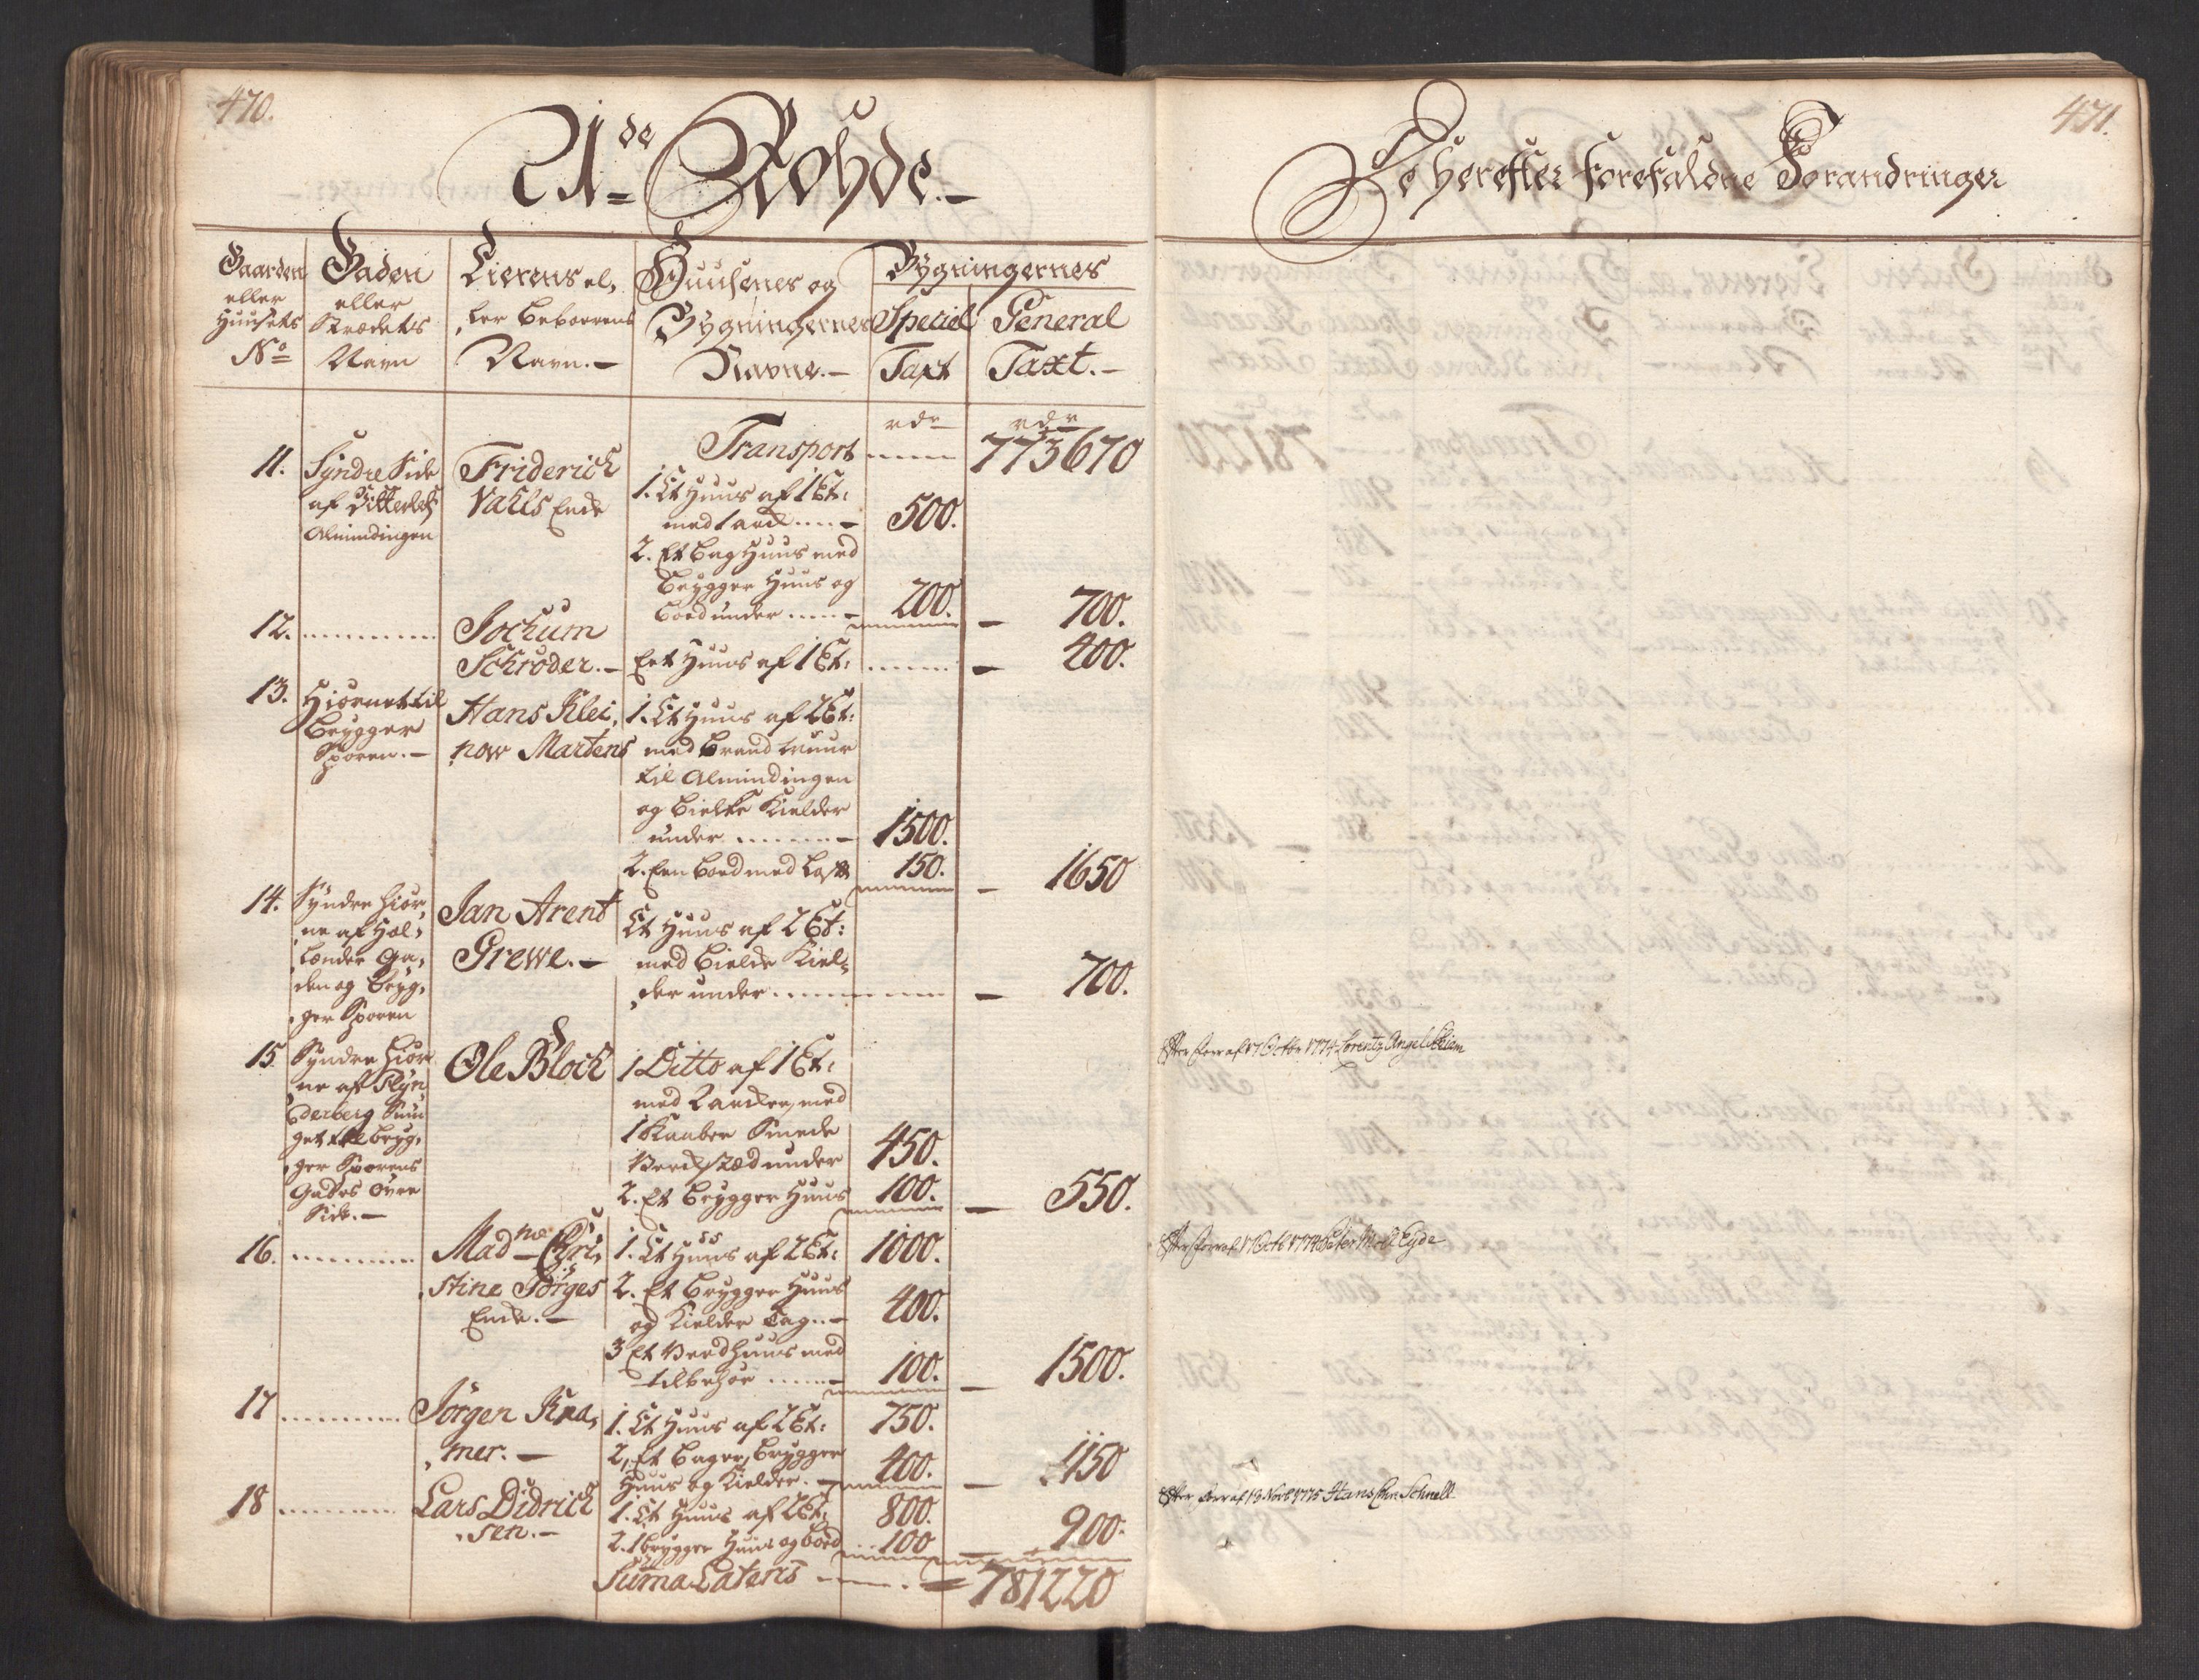 470.
21de Rohde.
Gaarden eller Huusets No
Gaden eller Strædets Navn
Eierens eller Beboerens Navn.
Huusenes og Bygningernes Navne.
Bygningernes
Special Taxt
General Taxt.
rdr rdr
Transport 773670
11. Syndre Side af Ditterlefs Almindingen
Friderich Vahls Enke
1. Et Huus af 1 Et: med 1 arck 500.
2. Et Bag Huus med
Brygger Huus og
Boed under 200. 700.
12. Jochum Schrøder. Eet Huus af 1 Et: 400.
13. Hiørnet til Brygger Sporen.
Hans Klei, now Martens
1. Et Huus af 2 Et:
med Brand Muur
til Almindingen
og Bielke Kielder
under 1500.
2. Een Boed med Loft 150. 1650
14. Syndre Hiør,
ne af Hol,
lænder Ga,
den og Bryg,
ger Sporen
Jan Arent Grewe.
Et Huus af 2 Et:
med Bielke Kiel,
der under 700.
15. Syndre Hiør
ne af Flyn
derberg Smu
get til Bryg,
ger Sporens
Gades Øvre
Side.
Ole Bloch
1 Ditto af 1 Et:
med 2 arcker, med
1 Kaaber Smede
Verckstæd under 450.
2. Et Brygger Huus 100. 550.
16. Madme Chri, stine Görges Enke.
1. Et Huus af 2 Et: 1000.
2. Et Brygger Huus
og Kielder Tag 400.
3 Et Vedhuus med
tilbehør 100. 1500.
17 Jørgen Kra, mer.
1. Et Huus af 2 Et: 750.
2, Et Bager, Brygger
Huus og Kielder. 400. 1150
18 Lars Didrich sen.
1. Et Huus af 2 Et: 800.
2. 1 brygger Huus og Boed 100 900.
Suma Lateris 781220
471.
De herefter forefaldne Forandringer
Efter forr af 17 Octbr 1774 Lorentz Angel
Efter forr af 17 Octb 1774 Peter Eyde
Efter forr af 13 Novb 1775 Hans Chr. Schnell